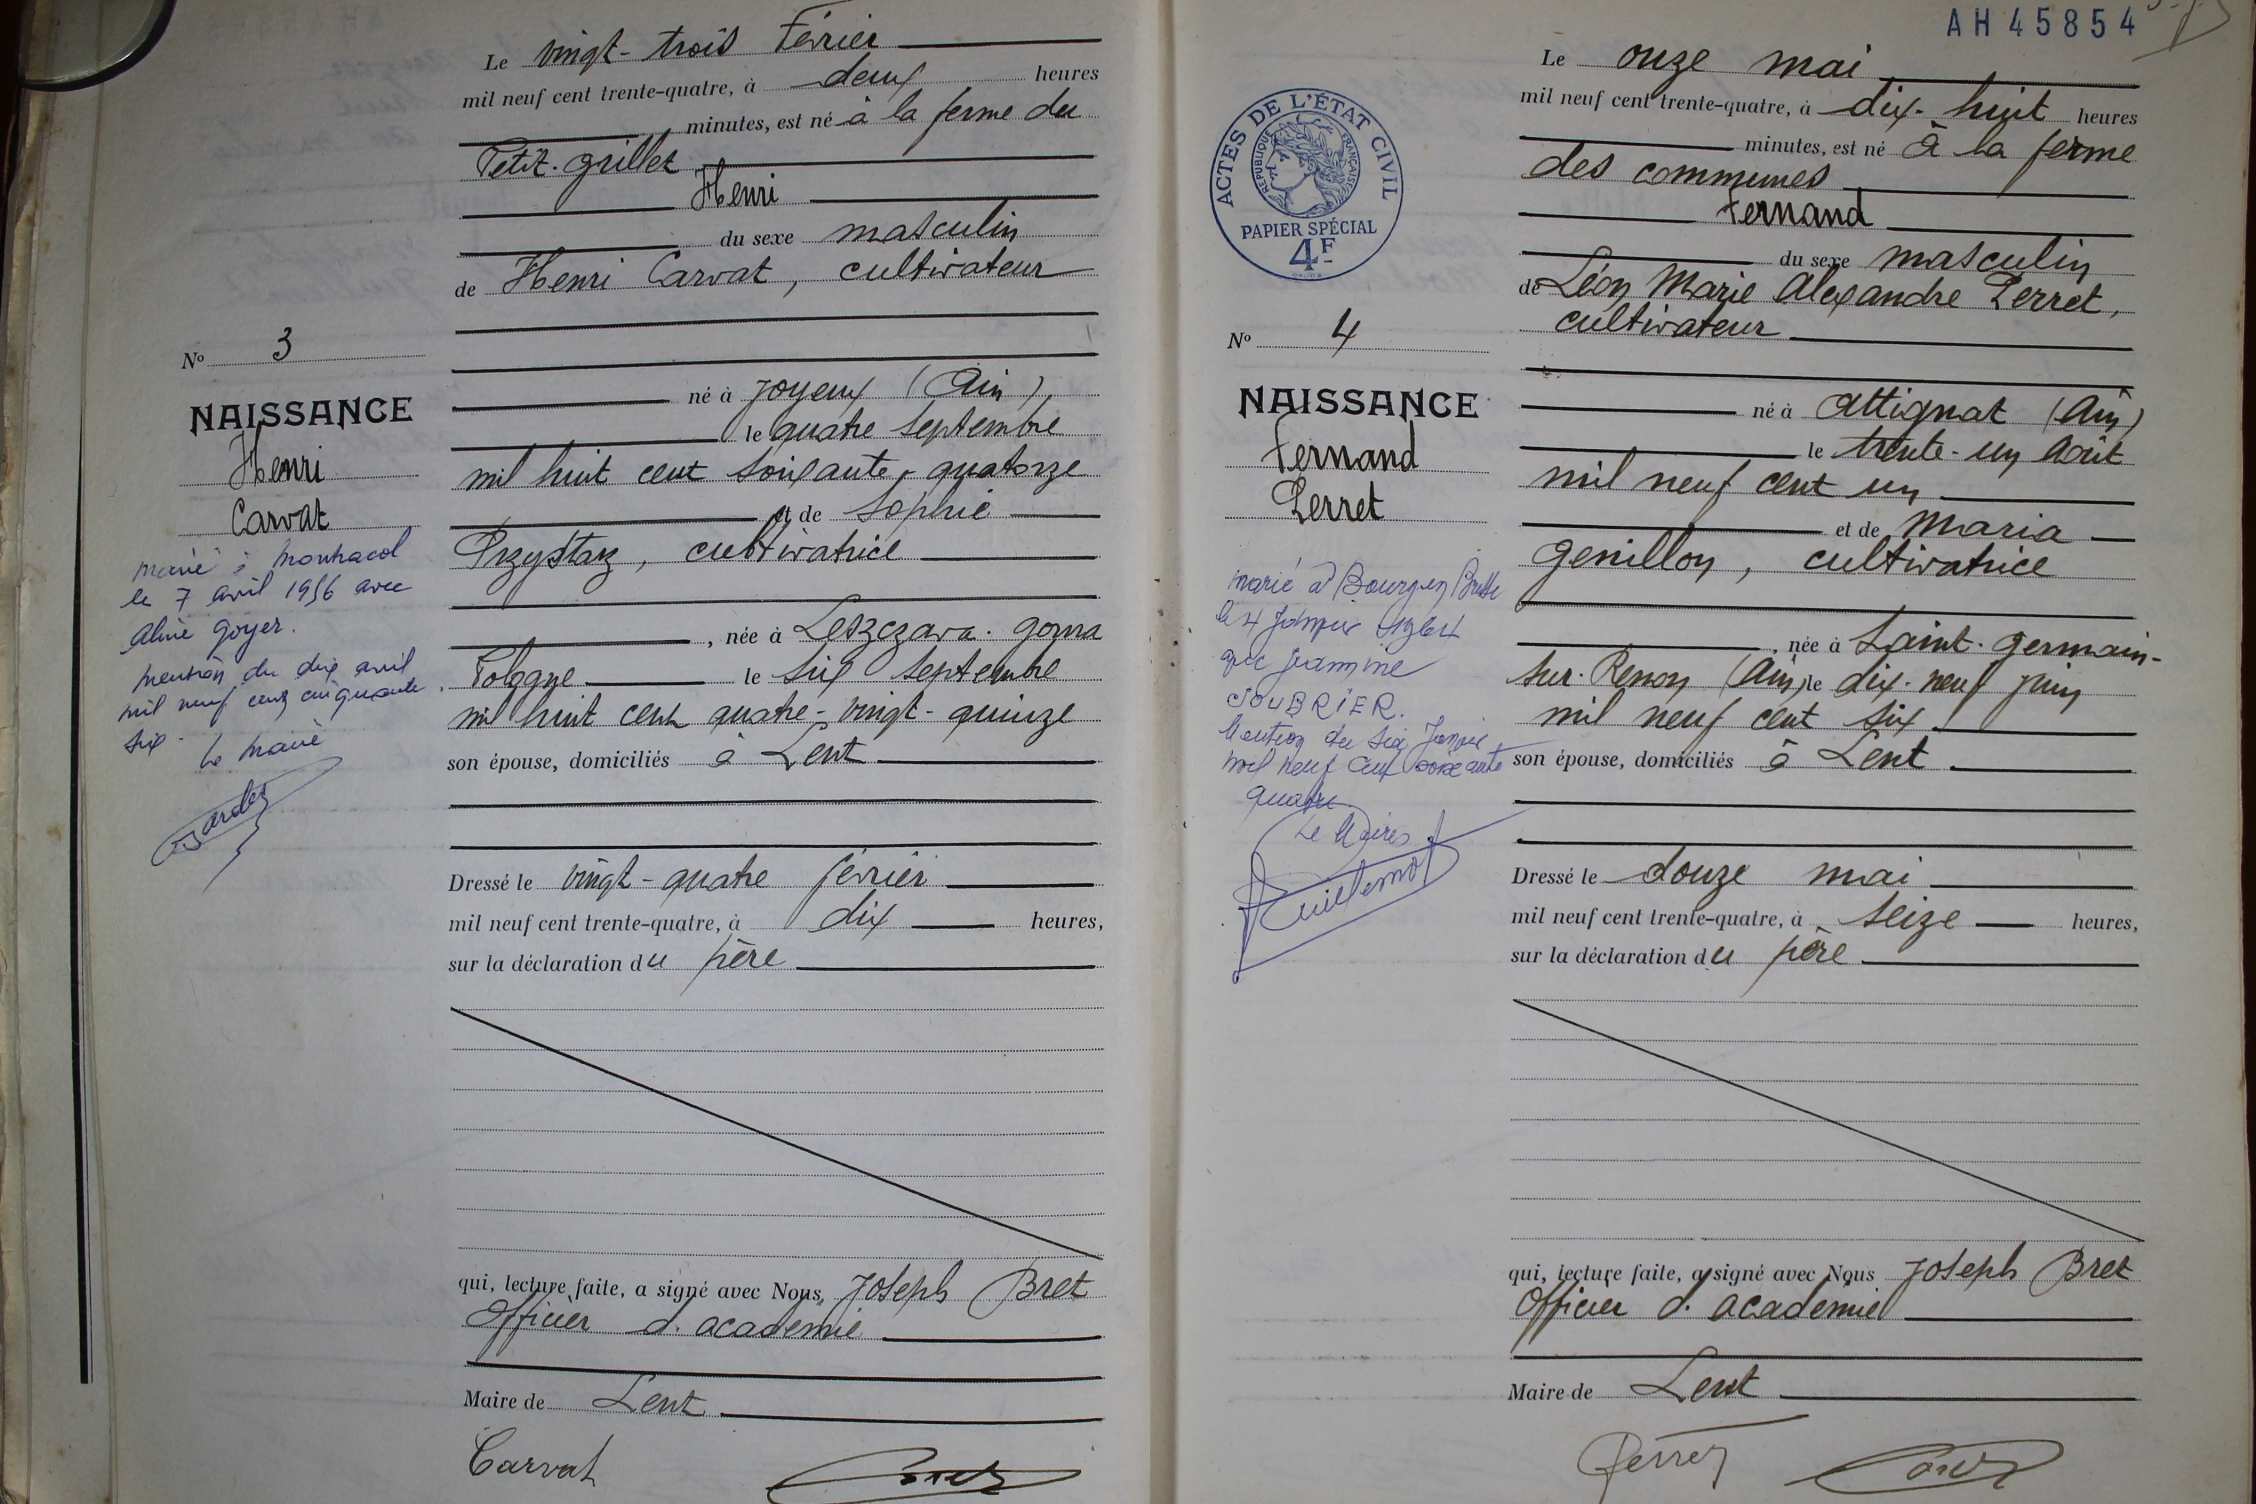 Le vingt-trois Février
mil neuf cent trente-quatre, à deux heures
minutes, est né à la ferme du
Petit-grillet
Henri
du sexe masculin
de Henri Carvat, cultivateur
né à Joyeux (Ain),
le quatre septembre
mil huit cent soixante-quatorze
et de Sophie
Przystaz, cultivatrice
, née à Leszczawa-gozna
Pologne le six septembre
mil huit cent quatre-vingt-quinze
son épouse, domiciliés à Lent
Dressé le vingt-quatre février
mil neuf cent trente-quatre, à dix heures,
sur la déclaration du père
qui, lecture faite, a signé avec Nous, Joseph Bret
Officier d'académie
Maire de Lent
Carvat
Nº 3
NAISSANCE
Henri
Carvat
marié à Montracol
le 7 avril 1956 avec
Aline Goyer.
mention du dix avril
mil neuf cent cinquante
six.
Le maire
AH 45854
Le onze mai
mil neuf cent trente-quatre, à dix-huit heures
minutes, est né à la ferme
des communes
Fernand
du sexe masculin
de Léon Marie Alexandre Perret,
cultivateur
né à Attignat (Ain)
le trente-un août
mil neuf cent un
et de Maria
Genillon, cultivatrice
, née à Saint-Germain-
sur-Renon (Ain) le dix-neuf juin
mil neuf cent six
son épouse, domiciliés à Lent
Dressé le douze mai
mil neuf cent trente-quatre, à seize heures,
sur la déclaration du père
qui, lecture faite, a signé avec Nous Joseph Bret
Officier d'académie
Maire de Lent
Perret
ACTES DE L'ÉTAT CIVIL
RÉPUBLIQUE FRANÇAISE
PAPIER SPÉCIAL
4F
Nº 4
NAISSANCE
Fernand
Perret
marié à Bourg en Bresse
le 4 Janvier
avec Jeannine
JOUBRIER.
Mention du six Janvier
mil neuf cent soixante
quatre
Le Maire
Guillemot